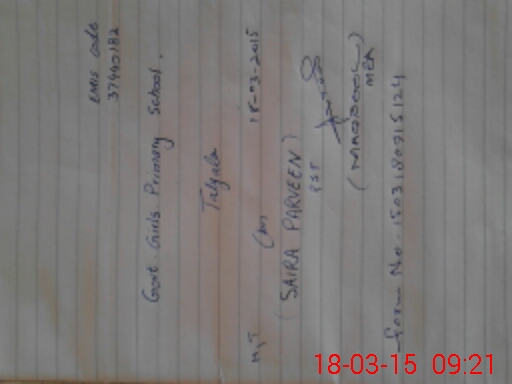 EMIS code
37440182
Govt Girls Primary School.
18-03-2015
(SAIRA PARVEEN)
PST
(MAQBOOL)
MEA
Form No. 1503180915124
18-03-15 09:21